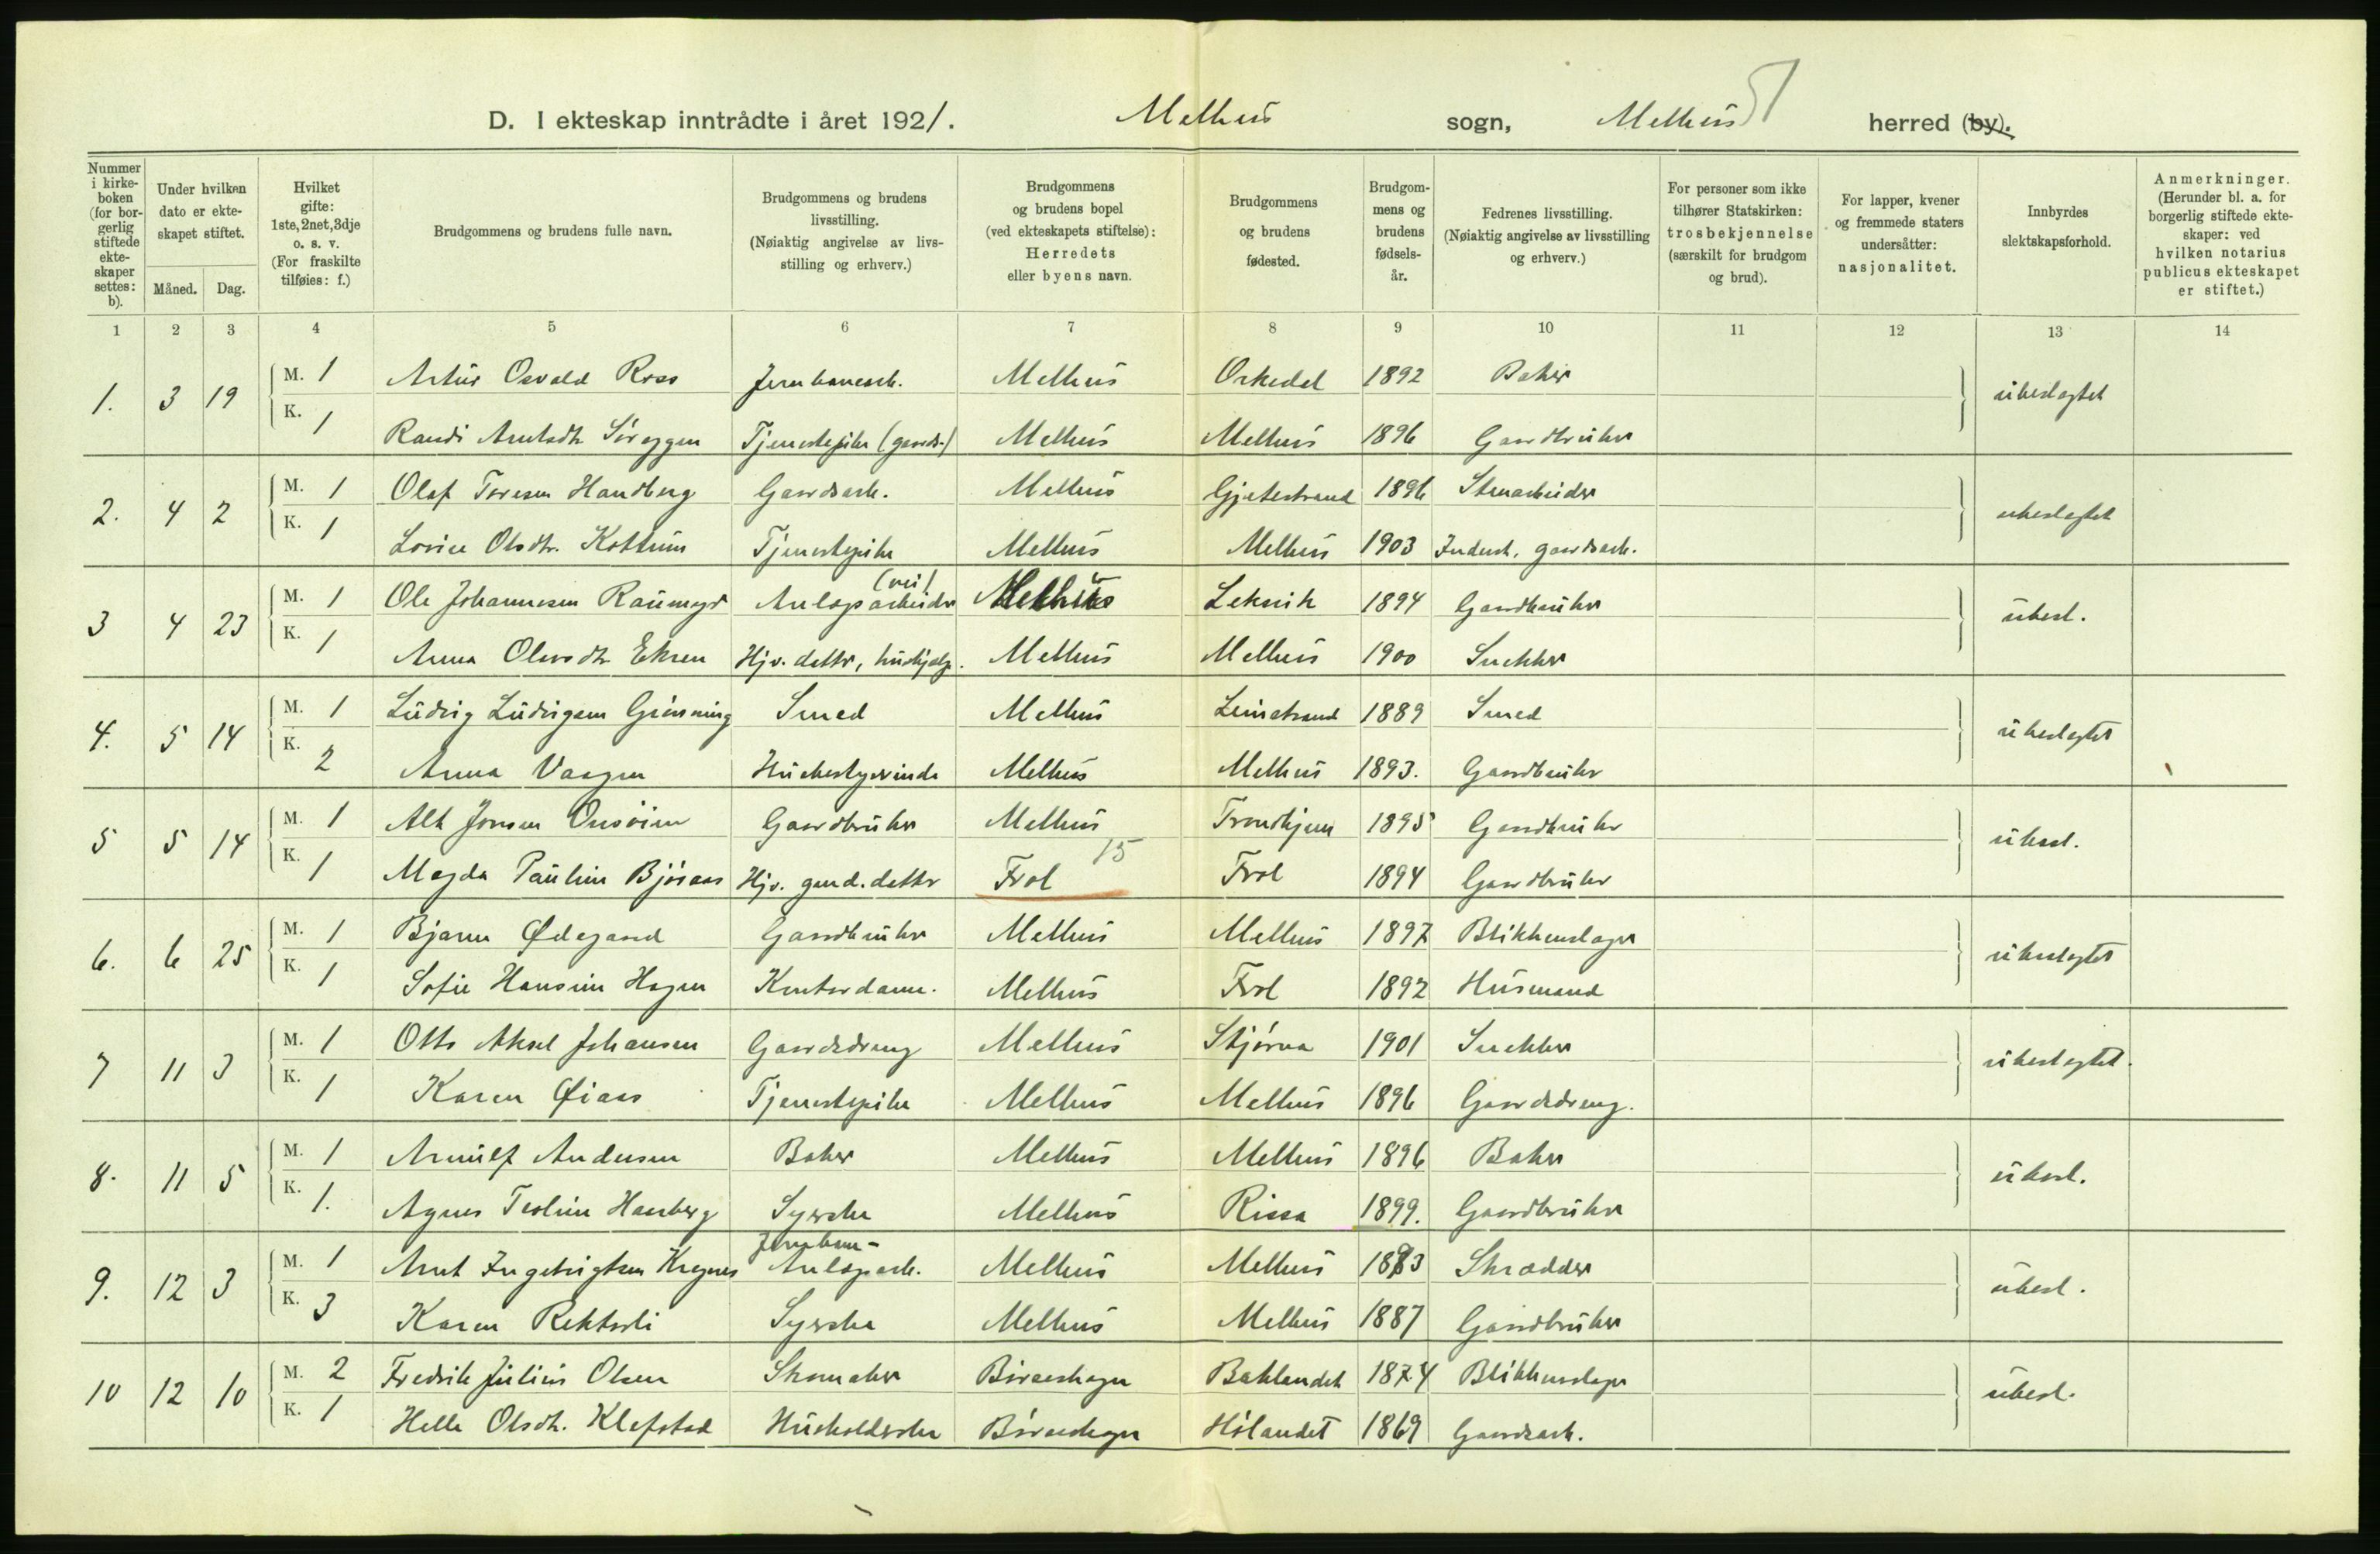 D. I ekteskap inntrådte i året 1921. Melhus sogn, Melhus herred (by).
Nummer i kirke-boken (for bor-gerlig stiftede ekte-skaper settes: b).
Under hvilken dato er ekte-skapet stiftet.
Måned. Dag.
Hvilket gifte: 1ste, 2net, 3dje o. s. v. (For fraskilte tilføies: f.)
Brudgommens og brudens fulle navn.
Brudgommens og brudens livsstilling. (Nøiaktig angivelse av livs-stilling og erhverv.)
Brudgommens og brudens bopel (ved ekteskapets stiftelse): Herredets eller byens navn.
Brudgommens og brudens fødested.
Brudgom-mens og brudens fødsels-år.
Fedrenes livsstilling. (Nøiaktig angivelse av livsstilling og erhverv.)
For personer som ikke tilhører Statskirken: trosbekjennelse (særskilt for brudgom og brud).
For lapper, kvener og fremmede staters undersåtter: nasjonalitet.
Innbyrdes slektskapsforhold.
Anmerkninger. (Herunder bl. a. for borgerlig stiftede ekte-skaper: ved hvilken notarius publicus ekteskapet er stiftet.)
1 2 3 4 5 6 7 8 9 10 11 12 13 14
1. 3 19 M. 1 Artur Osvald Ross Jernbanearb. Melhus Orkedal 1892 Baker ubeslegtet
K. 1 Randi Arntsdtr. Tjenestepike (gaards-) Melhus Melhus 1896 Gaardbruker
2. 4 2 M. 1 Olaf Toresen Handberg Gaardsarb. Melhus Gjeitastrand 1896 Stenarbeider ubeslegtet
K. 1 Lovise Olsdtr. Kottum Tjenestepike Melhus Melhus 1903 Inderst, gaardsarb.
(vei)
3 4 23 M. 1 Ole Johannesen Raumyr Anlægsarbeider Melhus Leksvik 1894 Gaardbruker ubesl.
K. 1 Anna Olavsdtr. Eksen Hjv. datter, hushjælp. Melhus Melhus 1900 Snekker
4. 5 14 M. 1 Ludvig Ludvigsen Grinning Smed Melhus Leinstrand 1889 Smed ubeslegtet
K. 2 Anna Vaagen Husbestyrerinde Melhus Melhus 1893. Gaardbruker
5 5 14 M. 1 Alf Jonsen Onsöien Gaardbruker Melhus Trondhjem 1895 Gaardbruker ubesl.
15
K. 1 Magda Pauline Björaas Hjv. gaard. datter Frol Frol 1894 Gaardbruker
6. 6 25 M. 1 Bjarne Ødegaard Gaardbruker Melhus Melhus 1897 Blikkenslager ubeslegtet
K. 1 Sofie Hansine Hagen Kontordame. Melhus Frol 1892 Husmand
7 11 3 M. 1 Otto Aksel Johansen Gaardsdreng Melhus Stjørna 1901 Snekker ubeslegtet.
K. 1 Karen Øiaas Tjenestepike Melhus Melhus 1896 Gaardsdreng.
8. 11 5 M. 1 Arnulf Andersen Baker Melhus Melhus 1896 Baker ubesl.
K. 1. Agnes Teoline Syerske Melhus Rissa 1899. Gaardbruker
Jernbane-
9. 12 3 M. 1 Arnt Ingebrigtsen Kregnes Anlægsarb. Melhus Melhus 1883 Skrædder ubesl.
K. 3 Karen Rektorli Syerske Melhus Melhus 1887 Gaardbruker
10 12 10 M. 2 Fredrik Julius Olsen Skomaker Børseskogn Baklandet 1874 Blikkenslager ubesl.
K. 1 Olsdtr. Klefstad Husholderske Børseskogn Hölandet 1869 Gaardsarb.